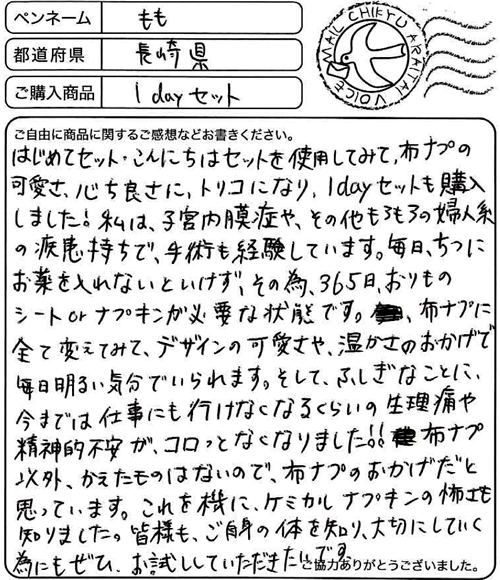 ペンネーム もも
都道府県 長崎県
ご購入商品 1dayセット
MAIL CHIKYU ARAITAI VOICE
ご自由に商品に関するご感想などお書きください。
はじめてセット・こんにちはセットを使用してみて、布ナプの
可愛さ、心ち良さに、トリコになり、1dayセットも購入
しました!私は、子宮内膜症や、その他もろもろの婦人系
の疾患持ちで、手術も経験しています。毎日、ちつに
お薬を入れないといけず、その為、365日、おりもの
シートorナプキンが必要な状態です。、布ナプに
全て変えてみて、デザインの可愛さや、温かさのおかげで
毎日明るい気分でいられます。そして、ふしぎなことに、
今までは仕事にも行けなくなるくらいの生理痛や
精神的不安が、コロっとなくなりました!!布ナプ
以外、かえたものはないので、布ナプのおかげだと
思っています。これを機に、ケミカルナプキンの怖さも
知りました。皆様も、ご自身の体を知り、大切にしていく
為にもぜひ、お試ししていただきたいです。
ご協力ありがとうございました。